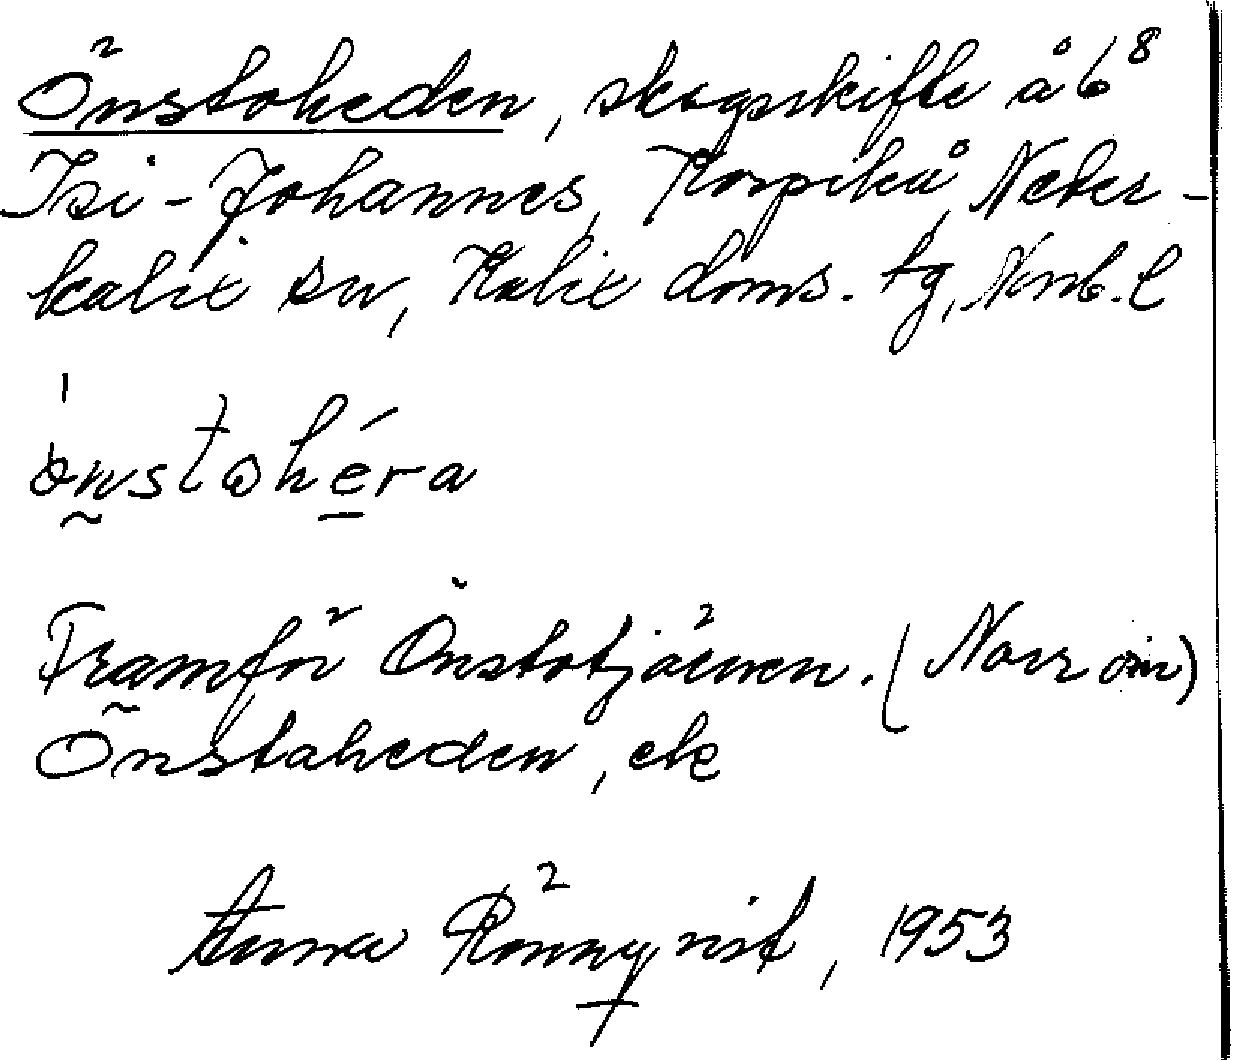 Önstoheden, skogsskifte å 6⁸
Isi-Johannes, Korpikå, Neder-
kalix sn, Kalix doms. tg, Nrnb. l
ònstohéra
Framför Önstotjärnen. (Norr om)
Önstaheden, ek
Anna Rönnqvist, 1953